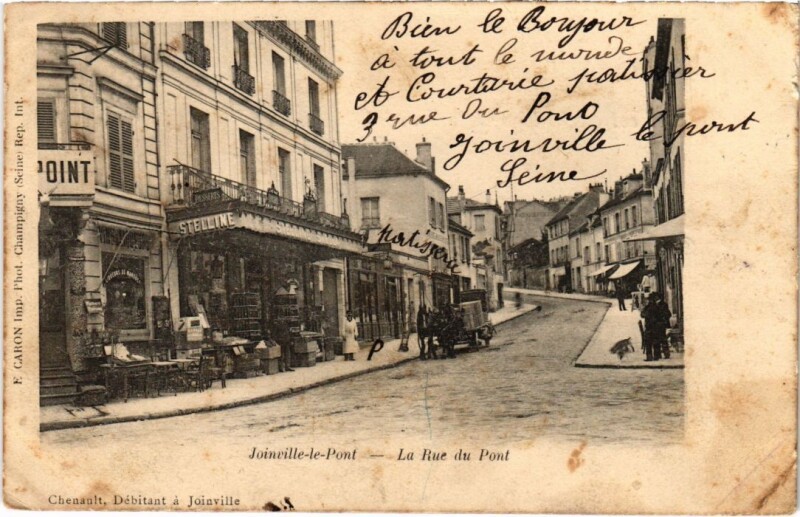 Bien le Bonjour
à tout le monde
et Courturie patissier
3 rue Du Pont
Joinville le pont
Seine
OINT
STELLIME
Patisserie
P
F. CARON Imp. Phot. Champigny (Seine) Rep. Int.
Joinville-le-Pont — La Rue du Pont
Chenault, Débitant à Joinville